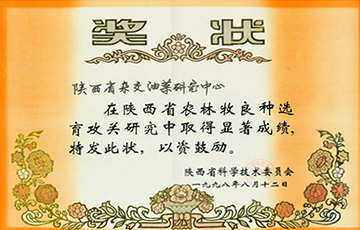 奖状
陕西省杂交油菜研究中心
在陕西省农林牧良种选
育攻关研究中取得显著成绩，
特发此状，以资鼓励。
陕西省科学技术委员会
一九九八年八月十二日